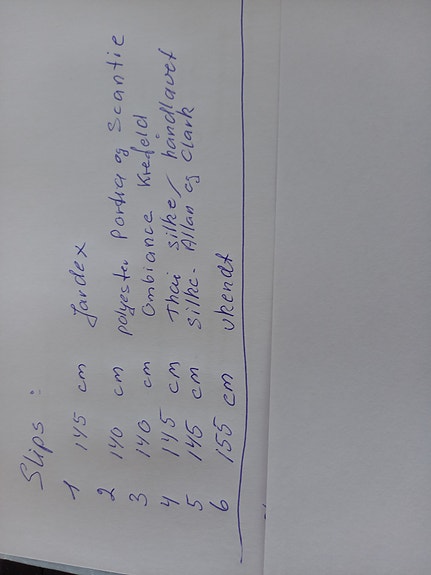 Slips:
1 145 cm Jardex
2 140 cm polyester Portia og Scantie
3 140 cm Ombiance Krefeld
4 145 cm Thai silke / håndlavet
5 145 cm silke - Allan og Clark
6 155 cm ukendt